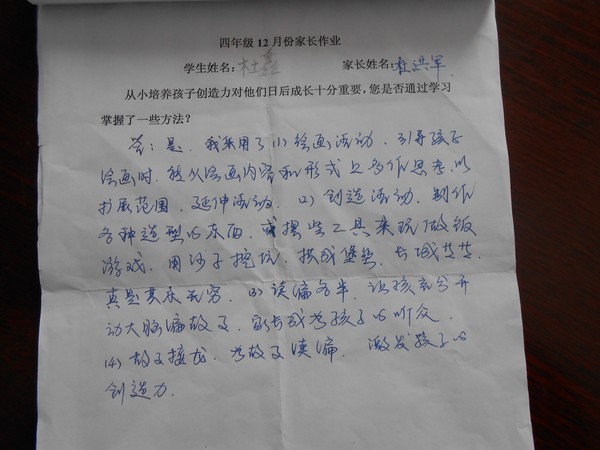 四年级12月份家长作业
学生姓名：杜鑫 家长姓名：杜洪军
从小培养孩子创造力对他们日后成长十分重要，您是否通过学习
掌握了一些方法？
答：是，我采用了(1)绘画活动，引导孩子
绘画时，能从绘画内容和形式上多作思考，以
扩展范围，延伸活动。(2)创造活动，制作
各种造型的东西，或摆些工具来玩做饭
游戏，用沙子挖坑，拱成堡垒，长城等等，
真是其乐无穷。(3)读编各半，让孩充分开
动大脑编故事，家长成为孩子的听众。
(4)故事接龙，为故事续编，激发孩子的
创造力。